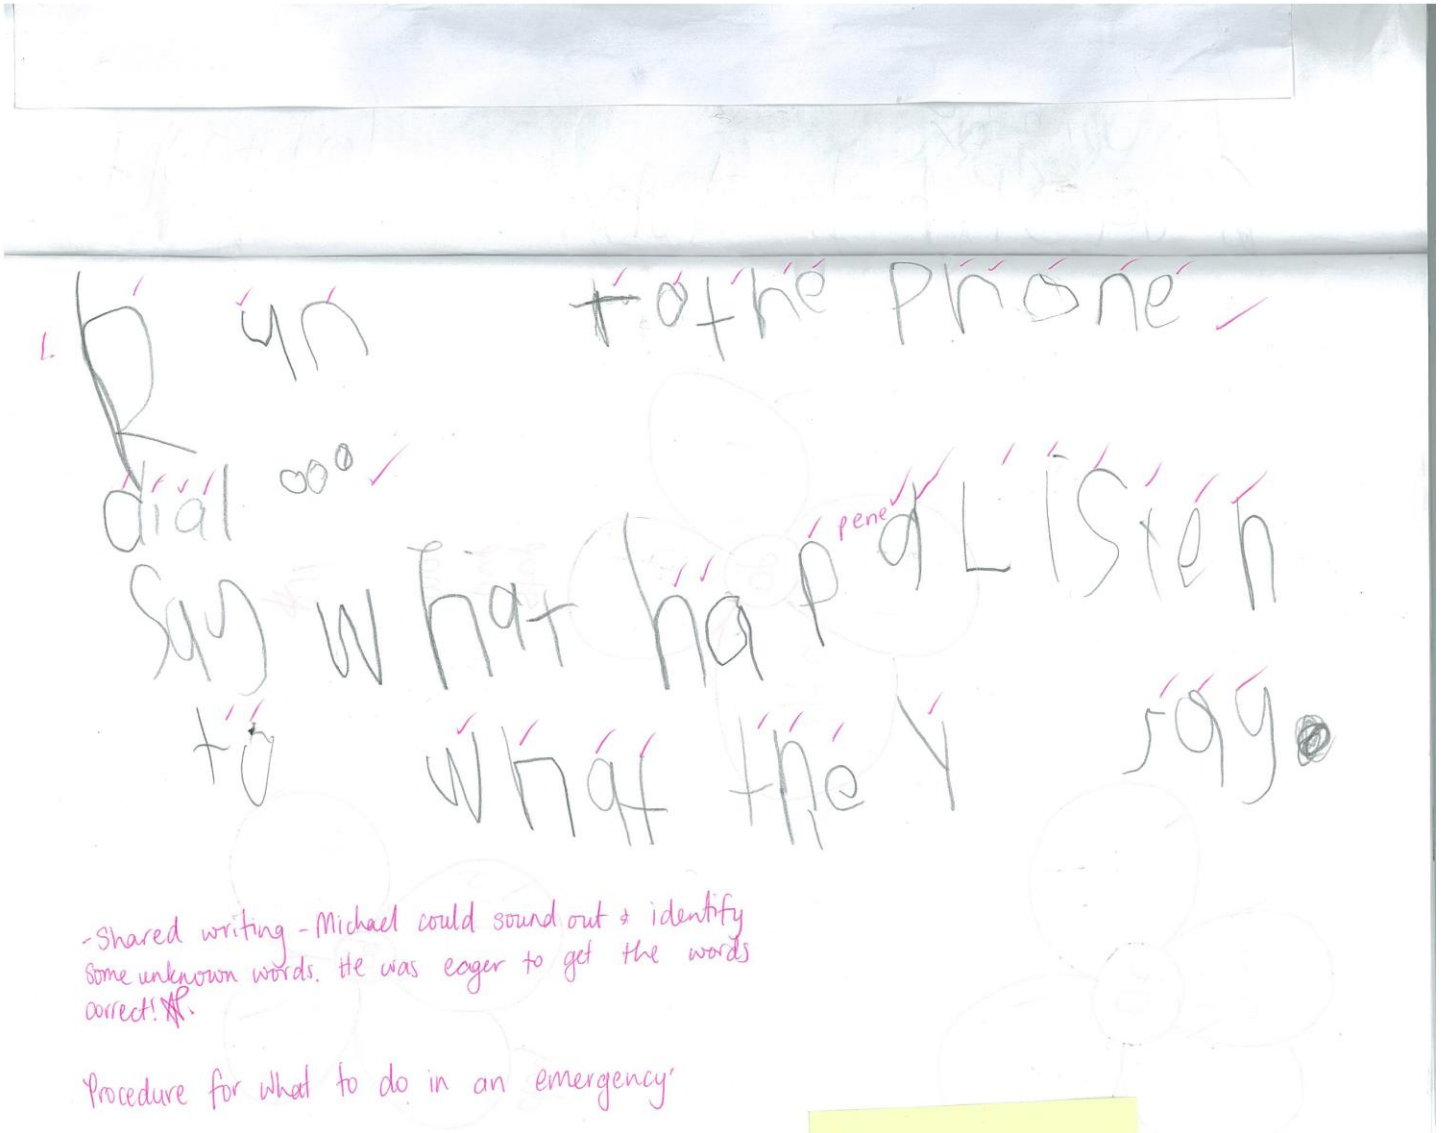 1. Run to the phone
dial 000
Say what hap pene d Listen
to what they say.
-Shared writing - Michael could sound out & identify
some unknown words. He was eager to get the words
correct!
Procedure for what to do in an emergency